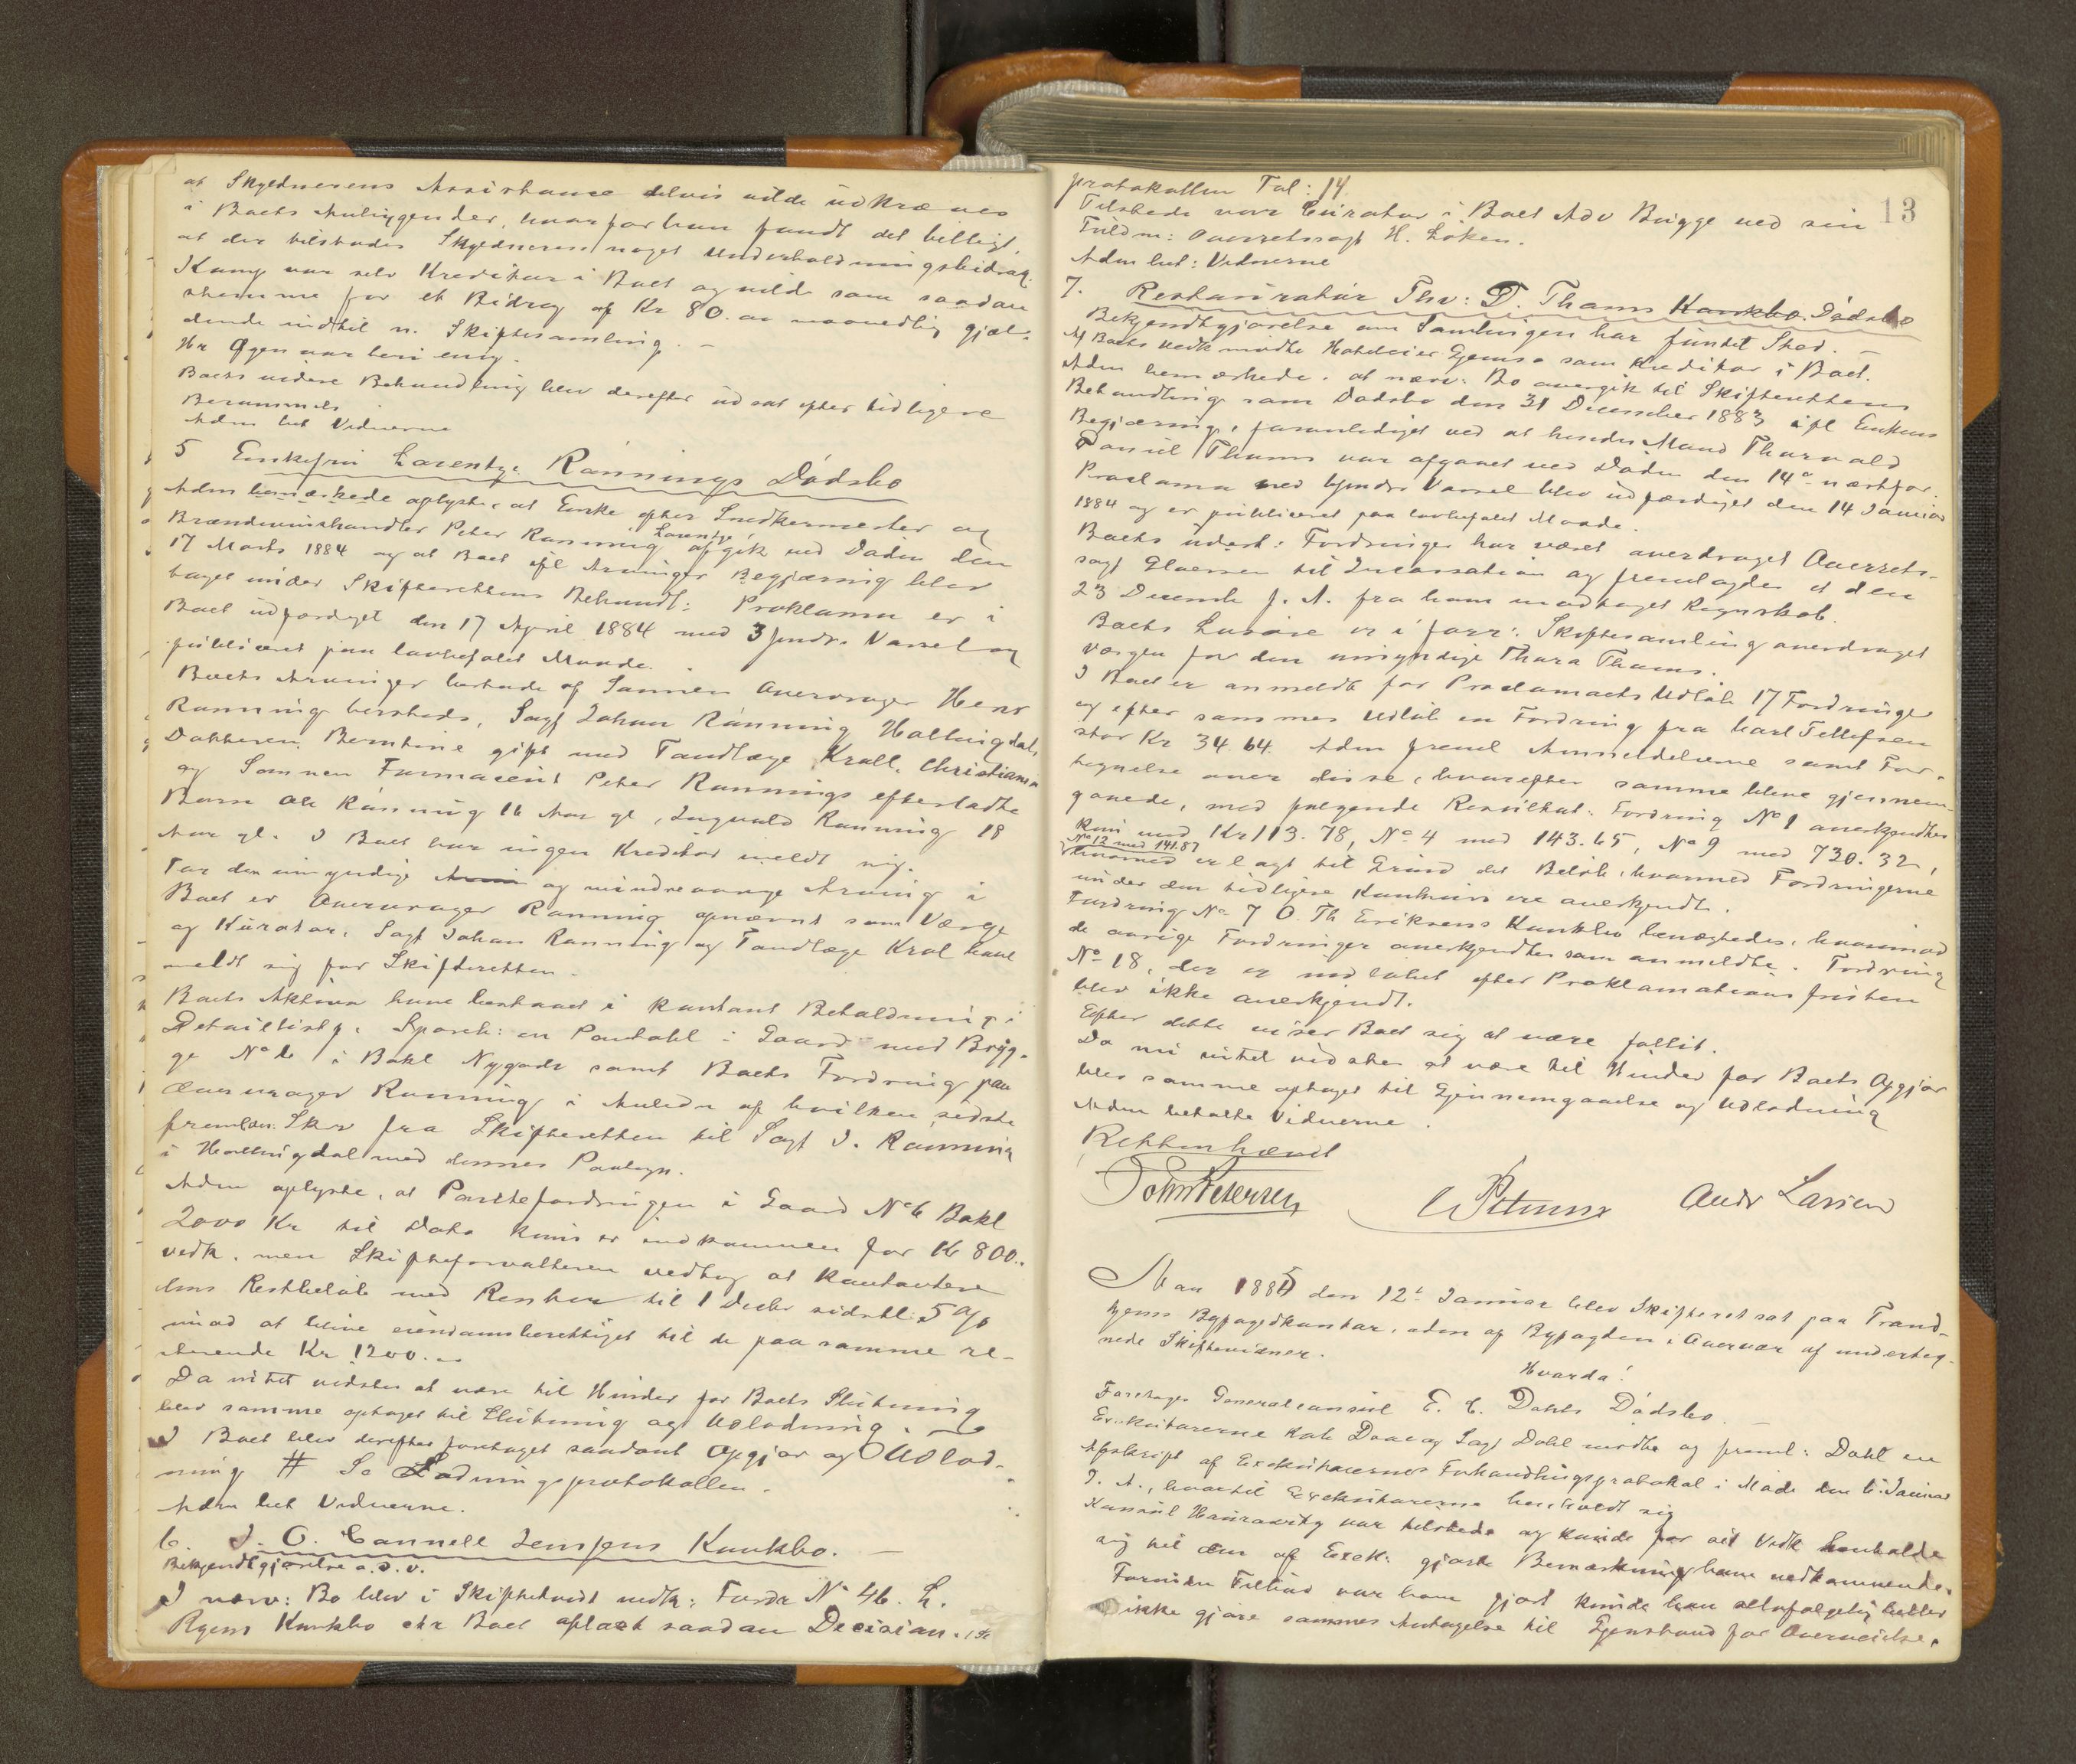 at Skyldnerens Assistance delvis vilde udkræves
i Boets Anliggender, hvorfor han fandt det billigt,
at der tilstodes Skyldneren noget Underholdningsbidrag.
Kamp var selv Kreditor i Boet og vilde som saadan
stemme for et Bidrag af Kr 80.00 maanedlig gjæl-
dende indtil n. Skiftesamling. —
Hr Øgen var heri enig.
Boets videre Behandling blev derefter udsat efter tidligere
Berammels
Adm bet Vidnerne
5 Enkefru Lorentze Rønnings Dødsbo
Adm bemærkede oplyste, at Enke efter Snedkermester og
Brændevinshandler Peter Rønning Lorentze afgik ved Døden den
17 Marts 1884 og at Boet ifl Arvinger Begjæring blev
taget under Skifterettens Behandl: Proklama er i
Boet udfærdiget den 17 April 1884 med 3 Mndrs Varsel og
publiceret paa lovbefalet Maade.
Boets Arvinger bestode af Sønnen Overvrager Henr
Rønning hersteds, Sagf Johan Rønning Hallingdal,
Datteren Berntine gift med Tandlæge Krall, Christiania
og Sønnen Farmaceut Peter Rønnings efterladte
Børn Ole Rønning 16 Aar gl, Ingvald Rønning 18
Aar gl. I Boet har ingen Kreditor meldt sig.
For den umyndige og mindreaarige Arving i
Boet er Overvrager Rønning opnævnt som Værge
og Kurator. Sagf Johan Rønning og Tandlæge Kral have
meldt sig for Skifteretten.
Boets Aktiva have bestaaet i kontant Beholdning i
Detaillistf. Spareb: en Panteobl i Gaard med Bryg-
ge No 6 i Bakl Nygade samt Boets Fordring paa
Overvrager Rønning i Anledn af hvilken sidste
fremlan: Skr fra Skifteretten til Sagf J. Rønning
i Hallingdal med dennes Paategn.
Adm oplyste, at Pantefordringen i Gaard No 6 Bakl
2000 Kr til Dato kuns er indkommen for Kr 800..
vedk. men Skifteforvalteren vedtog at kontantere
dens Restbeløb med Renter til 1 Decbr sidstl: 5 %
imod at blive eiendomsberettiget til de paa samme re-
sterende Kr 1200.00
Da intet vidstes at være til Hinder for Boets Slutning
blev samme optaget til Slutning og Udlodning.
I Boet blev derefter foretaget saadant Opgjør og Udlod-
ning # Se Lodningsprotokollen.
Adm bet Vidnerne.
6. J. O. Cannell Jensens Konkbo. —
Bekjendtgjørelse o.s.v.
I nærv: Bo blev i Skiftetvist vedk: Fordr No 46. L.
Ryens Konkbo ctr Boet oplæst saadan Decision. #Se
13
protokollen Fol: 14
Tilstede vare Curator i Boet Adv Brigge ved sin
Fuldm: Overretssagf H. Loken.
Adm bet: Vidnerne
7. Restauratør Thv: D. Thams Konkbo. Dødsbo
Bekjendtgjørelse om Samlingen har fundet Sted. —
Af Boets Vedk mødte Hoteleier Gjemsø som Kreditor i Boet.
Adm bemærkede, at nærv: Bo overgik til Skifterettens
Behandling som Dødsbo den 31 December 1883 ifl Enkens
Begjæring, foranlediget ved at hendes Mand Thorvald
Daniel Thams var afgaaet ved Døden den 14de næstfor.
Proclama med 6mdrs Varsel blev udfærdiget den 14 Januar
1884 og er publiceret paa lovbefalet Maade.
Boets udest: Fordringer har været overdraget Overrets-
sagf Gløersen til Incassation og fremlagdes et den
23 Decemb f. A. fra ham modtaget Regnskab.
Boets Løsøre er i forr: Skiftesamling overdraget
Værgen for den umyndige Thora Thams.
I Boet er anmeldt før Proclamaets Udløb 17 Fordringer
og efter sammes Udløb en Fordring fra Carl Tellefsen
stor Kr 34.64. Adm freml Anmeldelserne samt For-
tegnelse over disse, hvorefter samme bleve gjennem-
gaaede, med følgende Resultat: Fordring No 1 anerkjendtes
kun med Kr 113.78, No 4 med 143.65, No 9 med 730.32,
No 12 med 141.87
hvorved er lagt til Grund det Beløb, hvormed Fordringerne
under den tidligere Konkurs ere anerkjendt.
Fordring No 7 O. Th Eriksens Konkbo benægtedes, hvorimod
de øvrige Fordringer anerkjendtes som anmeldte. Fordring
No 18, der er indløbet efter Proklamationsfristen
blev ikke anerkjendt.
Efter dette viser Boet sig at være fallit.
Da nu intet vidstes at være til Hinder for Boets Opgjør
blev samme optaget til Gjennemgaaelse og Udlodning
Adm betalte Vidnerne.
Retten hævet
John Petersen Andr Larsen
Aar 1885 den 12te Januar blev Skifteret sat paa Trond-
hjems Byfogedkontor, adm af Byfogden i Overvær af underteg-
nede Skiftevidner.
Hvorda!
Foretoges Generalconsul E. C. Dahls Dødsbo. —
Exekutorerne Kobm Daae og Sagf Dahl mødte og freml: Dahl en
Afskrift af Exekutorernes Forhandlingsprotokol i Møde den 6 Januar
d. A., hvortil Exekutorerne henholdt sig
Konsul Huitfeldt var tilstede og kunde for sit Vedk henholde
sig til den af Exek: gjorte Bemærkning ham vedkommende.
Foruden Tilbud var ham gjort kunde han altsaa følgelig heller
ikke gjøre sammes Antagelse til Gjenstand for Overveielse.